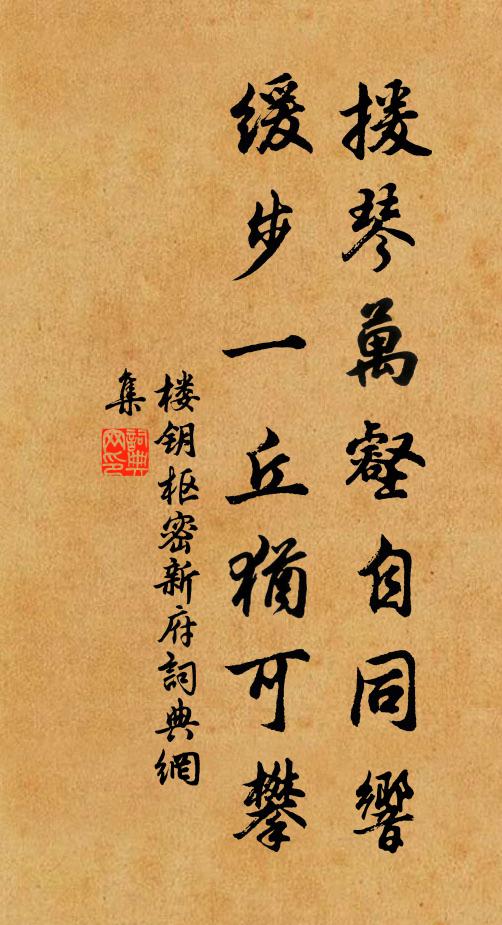 援琴萬壑自同響
緩步一丘猶可攀
楼钥枢密新府詞典網
集
詞典网印